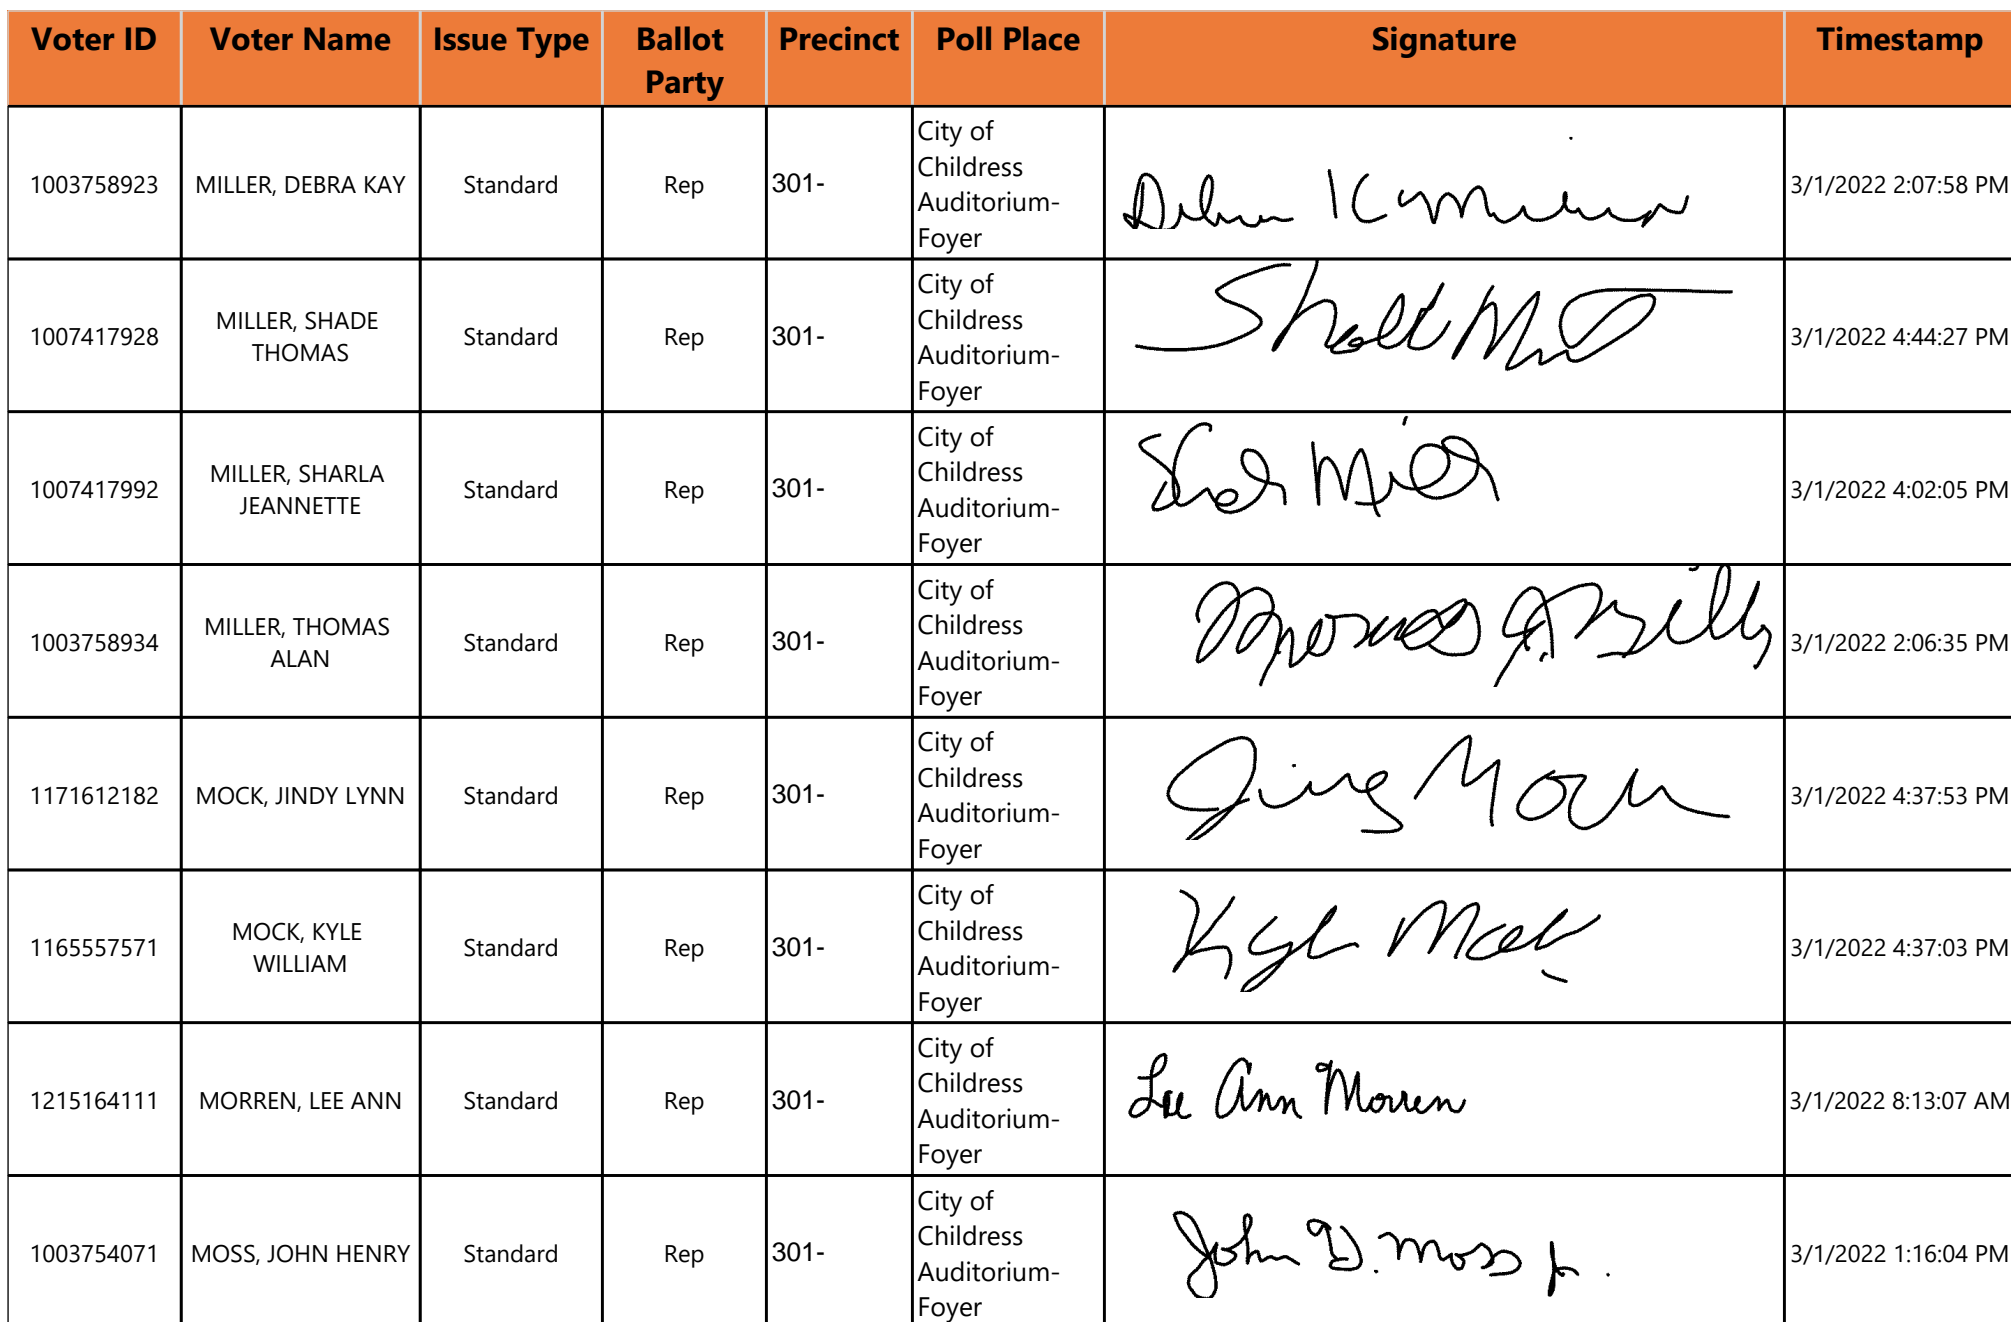 Voter ID Voter Name Issue Type Ballot Party Precinct Poll Place Signature Timestamp
1003758923 MILLER, DEBRA KAY Standard Rep 301- City of Childress Auditorium-Foyer Debra K Miller 3/1/2022 2:07:58 PM
1007417928 MILLER, SHADE THOMAS Standard Rep 301- City of Childress Auditorium-Foyer 3/1/2022 4:44:27 PM
1007417992 MILLER, SHARLA JEANNETTE Standard Rep 301- City of Childress Auditorium-Foyer Miller 3/1/2022 4:02:05 PM
1003758934 MILLER, THOMAS ALAN Standard Rep 301- City of Childress Auditorium-Foyer Thomas A. Miller 3/1/2022 2:06:35 PM
1171612182 MOCK, JINDY LYNN Standard Rep 301- City of Childress Auditorium-Foyer 3/1/2022 4:37:53 PM
1165557571 MOCK, KYLE WILLIAM Standard Rep 301- City of Childress Auditorium-Foyer Kyle Mock 3/1/2022 4:37:03 PM
1215164111 MORREN, LEE ANN Standard Rep 301- City of Childress Auditorium-Foyer Lee Ann Morren 3/1/2022 8:13:07 AM
1003754071 MOSS, JOHN HENRY Standard Rep 301- City of Childress Auditorium-Foyer John H. Moss Jr. 3/1/2022 1:16:04 PM